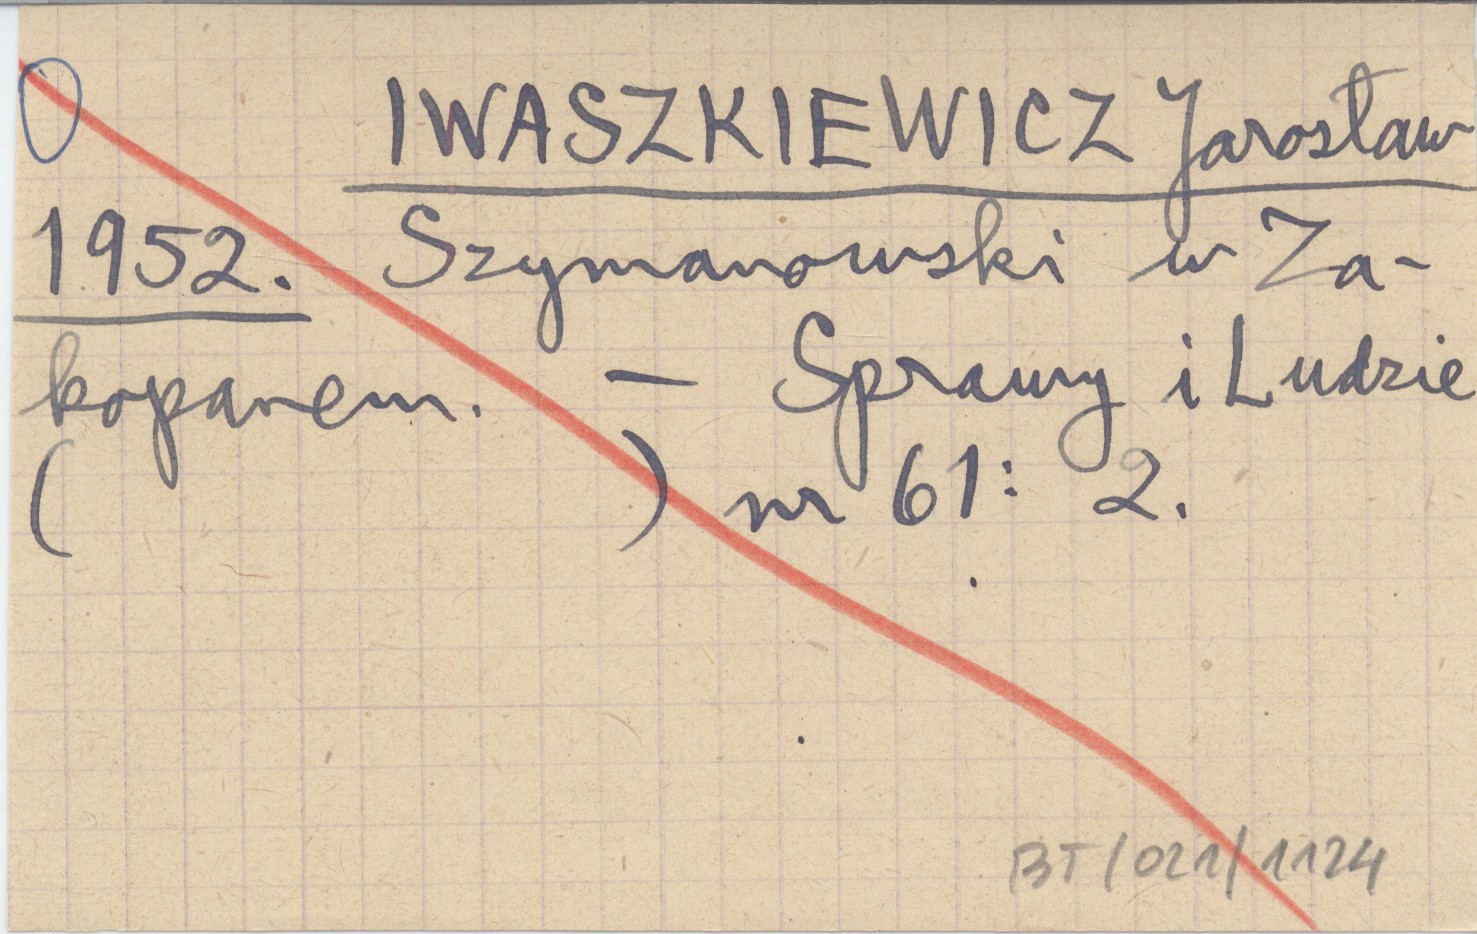 IWASZKIEWICZ Jarosław
1952. Szymanowski w Za-
kopanem. — Sprawy i Ludzie
( ) nr 61: 2.
BT/021/1124